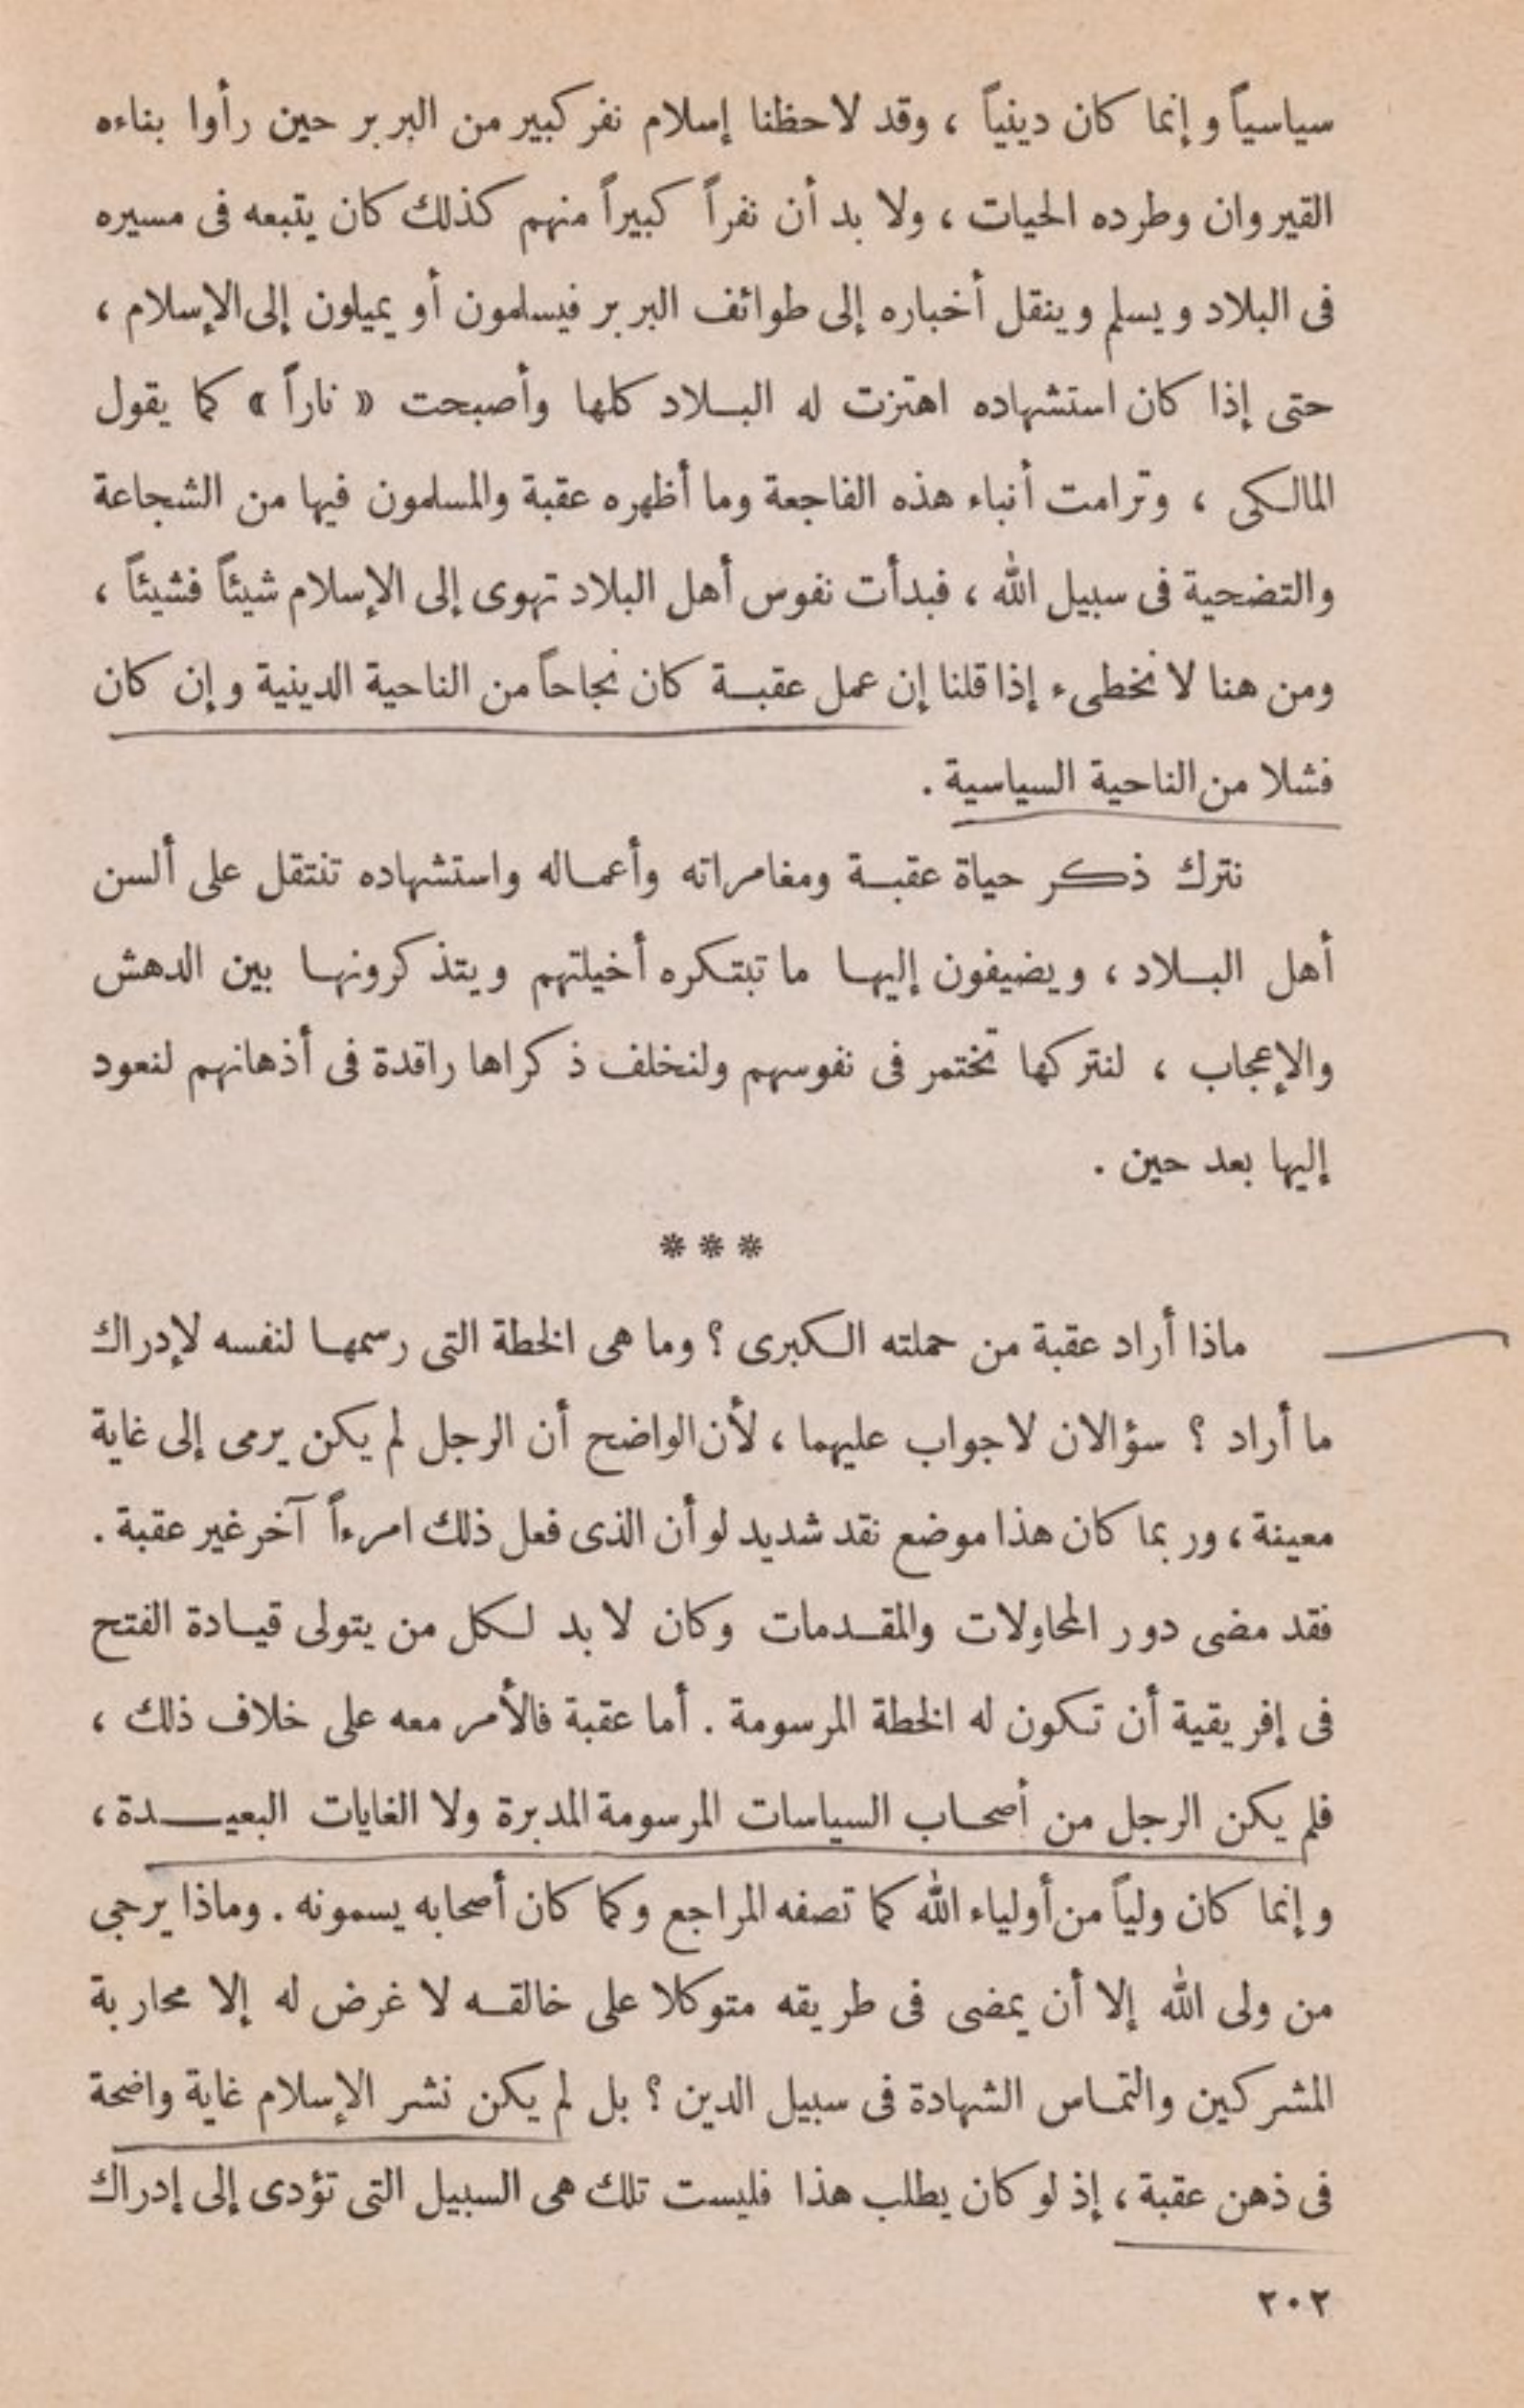 سياسياً وإنما كان دينياً ، وقد لاحظنا إسلام نفر كبير من البربر حين رأوا بناءه
القيروان وطرده الحيات ، ولا بد أن نفراً كبيراً منهم كذلك كان يتبعه فى مسيره
فى البلاد ويسلم وينقل أخباره إلى طوائف البربر فيسلمون أو يميلون إلى الإسلام ،
حتى إذا كان استشهاده اهتزت له البلاد كلها وأصبحت « ناراً » كما يقول
المالكى ، وترامت أنباء هذه الفاجعة وما أظهره عقبة والمسلمون فيها من الشجاعة
والتضحية فى سبيل الله ، فبدأت نفوس أهل البلاد تهوى إلى الإسلام شيئاً فشيئاً ،
ومن هنا لا نخطىء إذا قلنا إن عمل عقبة كان نجاحاً من الناحية الدينية وإن كان
فشلا من الناحية السياسية .
نترك ذكر حياة عقبة ومغامراته وأعماله واستشهاده تنتقل على ألسن
أهل البلاد ، ويضيفون إليها ما تبتكره أخيلتهم ويتذكرونها بين الدهش
والإعجاب ، لنتركها تختمر فى نفوسهم ولنخلف ذكراها راقدة فى أذهانهم لنعود
إليها بعد حين .
***
ماذا أراد عقبة من حملته الكبرى ؟ وما هى الخطة التى رسمها لنفسه لإدراك
ما أراد ؟ سؤالان لا جواب عليهما ، لأن الواضح أن الرجل لم يكن يرمى إلى غاية
معينة ، وربما كان هذا موضع نقد شديد لو أن الذى فعل ذلك امرءاً آخر غير عقبة .
فقد مضى دور المحاولات والمقدمات وكان لا بد لكل من يتولى قيادة الفتح
فى إفريقية أن تكون له الخطة المرسومة . أما عقبة فالأمر معه على خلاف ذلك ،
فلم يكن الرجل من أصحاب السياسات المرسومة المدبرة ولا الغايات البعيدة ،
وإنما كان ولياً من أولياء الله كما تصفه المراجع وكما كان أصحابه يسمونه . وماذا يرجى
من ولى الله إلا أن يمضى فى طريقه متوكلا على خالقه لا غرض له إلا محاربة
المشركين والتماس الشهادة فى سبيل الدين ؟ بل لم يكن نشر الإسلام غاية واضحة
فى ذهن عقبة ، إذ لو كان يطلب هذا فليست تلك هى السبيل التى تؤدى إلى إدراك
٢٠٢